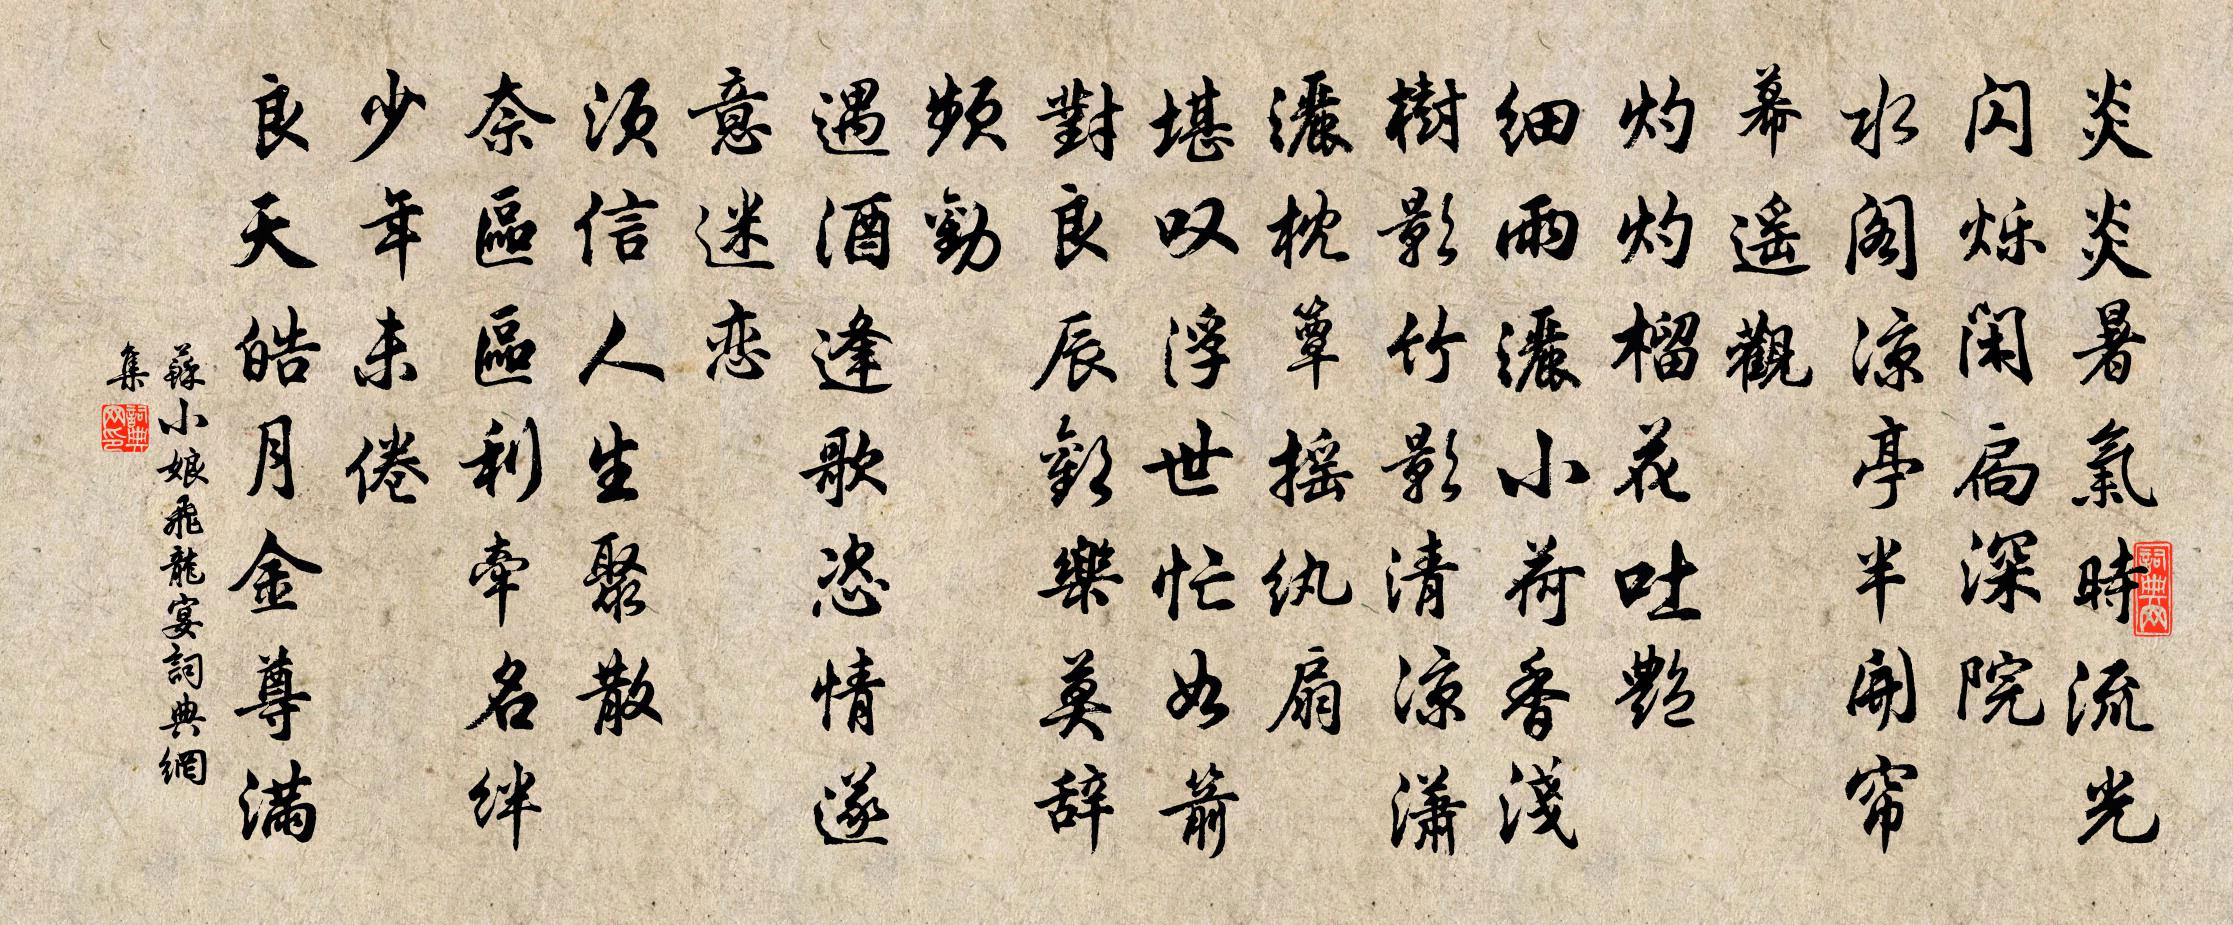 炎炎暑氣時流光
闪烁闲扃深院
水阁凉亭半開帘
幕遥觀
灼灼榴花吐艷
细雨灑小荷香淺
樹影竹影清凉瀟
灑枕簟摇纨扇
堪叹浮世忙如箭
對良辰歡樂莫辞
頻勸
遇酒逢歌恣情遂
意迷恋
須信人生聚散
奈區區利牽名绊
少年未倦
良天皓月金尊滿
蘇小娘飛龍宴詞典網
集
詞典网
詞典网印